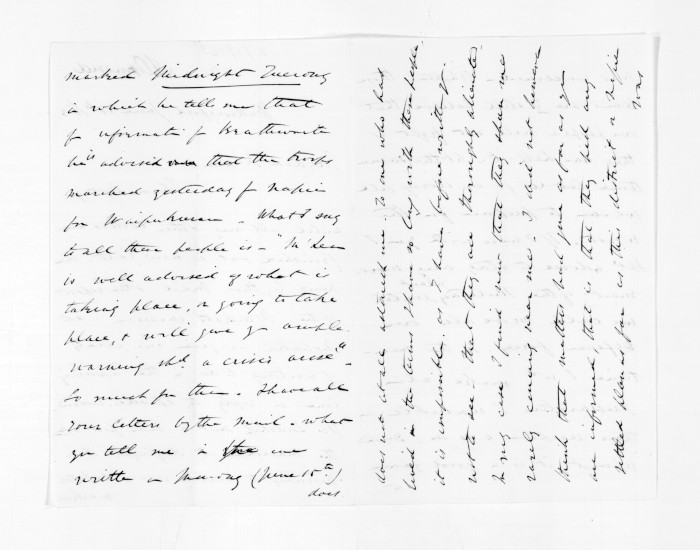 marked Midnight Tuesday
in which he tells me that
fr informatn fr Brathwaite
he is advised that the troops
marched yesterday fr Napier
for Waipukurau - What I say
to all these people is - "McLean
is well advised of what is
taking place, or going to take
place, & will give yo ample
warning shd a crisis arise" -
So much for them. I have all
your letters by the mail - what
you tell me in the one
written on Thursday (June 15th)
does
does not at all astonish me. To one who has
lived on the terms I have so long with these people
it is impossible, as I have before written yo.
not to see that they are thoroughly alienated.
In my case I find now that they shun me
rarely coming near me - I did not however
think that matters had gone as far as yo
are informed, that is that they had any
settled plans as far as this district or Napier
was